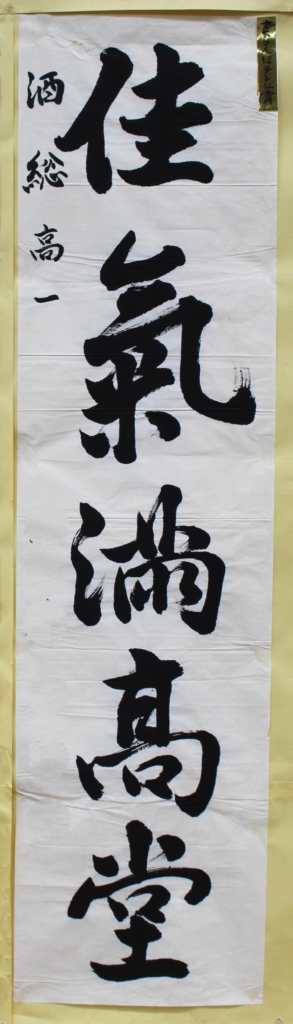 佳氣満高堂
酒総高一